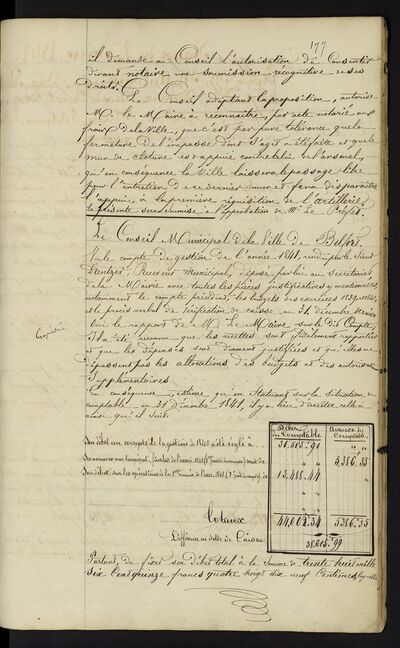 177
il demande au Conseil l'autorisation de Consentir
devant notaire une soumission récognitive de ses
droits.
Le Conseil adoptant la proposition, autorise
M. le Maire à reconnaître, par acte notarié aux
frais de la Ville, que c'est par pure tolérance que la
fermeture de l'impasse dont il s'agit a été faite et que le
mur de clôture est appuyé contre celui de l'arsenal,
qu'en conséquence la Ville laissera le passage libre
pour l'entretien de ce dernier mur et fera disparaître
l'appui, à la première réquisition de l'artillerie.
La présente sera soumise à l'approbation de Mr. le Préfet.
Le Conseil Municipal de la Ville de Belfort,
Vu le compte de gestion de l'année 1841, rendu par le Sieur
Receveur municipal, déposé par lui au Secrétariat
de la Mairie avec toutes les pièces justificatives y mentionnées
notamment le compte précédent, les budgets des exercices 1839 1840,
et le procès verbal de vérification de caisse au 31. décembre dernier
Vu le rapport de M. Le Maire sur le dit Compte,
Il a été reconnu que les recettes sont fidèlement rapportées
et que les dépenses sont dûment justifiées et qu'elles ne
dépassent pas les allocations des budgets et des autorisations
Supplémentaires
En conséquence, estime qu'en Statuant sur la situation du
comptable au 31 Décembre 1841, il y a lieu d'arrêter celle-ci
ainsi qu'il suit:
Copie
Débet du Comptable
Avances du Comptable
Son débet au compte de la gestion de 1840 a été réglé à
30,513.90
" "
5,386.35
13,488.44
" "
Totaux
44,002.34
5386.35
Différence au solde de Caisse
38,615.99
Partant, de fixer son débet total à la Somme de trente huit mille
Six Cent quinze francs quatre vingt dix neuf Centimes